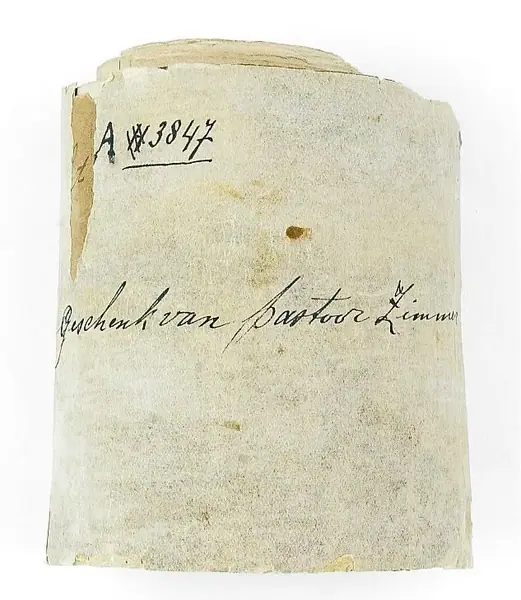 A 3847
Geschenk van pastoor de Zimmer